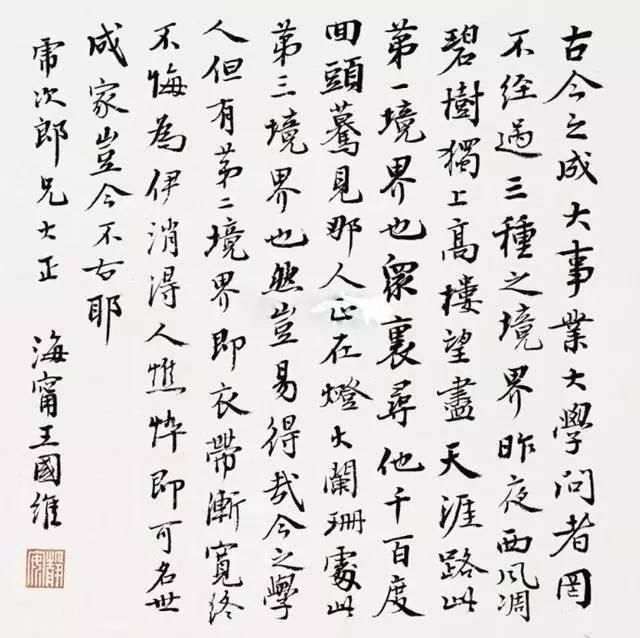 古今之成大事業大學問者罔
不經過三種之境界昨夜西風凋
碧樹獨上高樓望盡天涯路此
第一境界也眾裏尋他千百度
回頭驀見那人正在燈火闌珊處此
第三境界也然豈易得哉今之學
人但有第二境界即衣帶漸寬終
不悔為伊消得人憔悴即可名世
成家豈今不古耶
乕次郎兄大正
海甯王國維
靜安